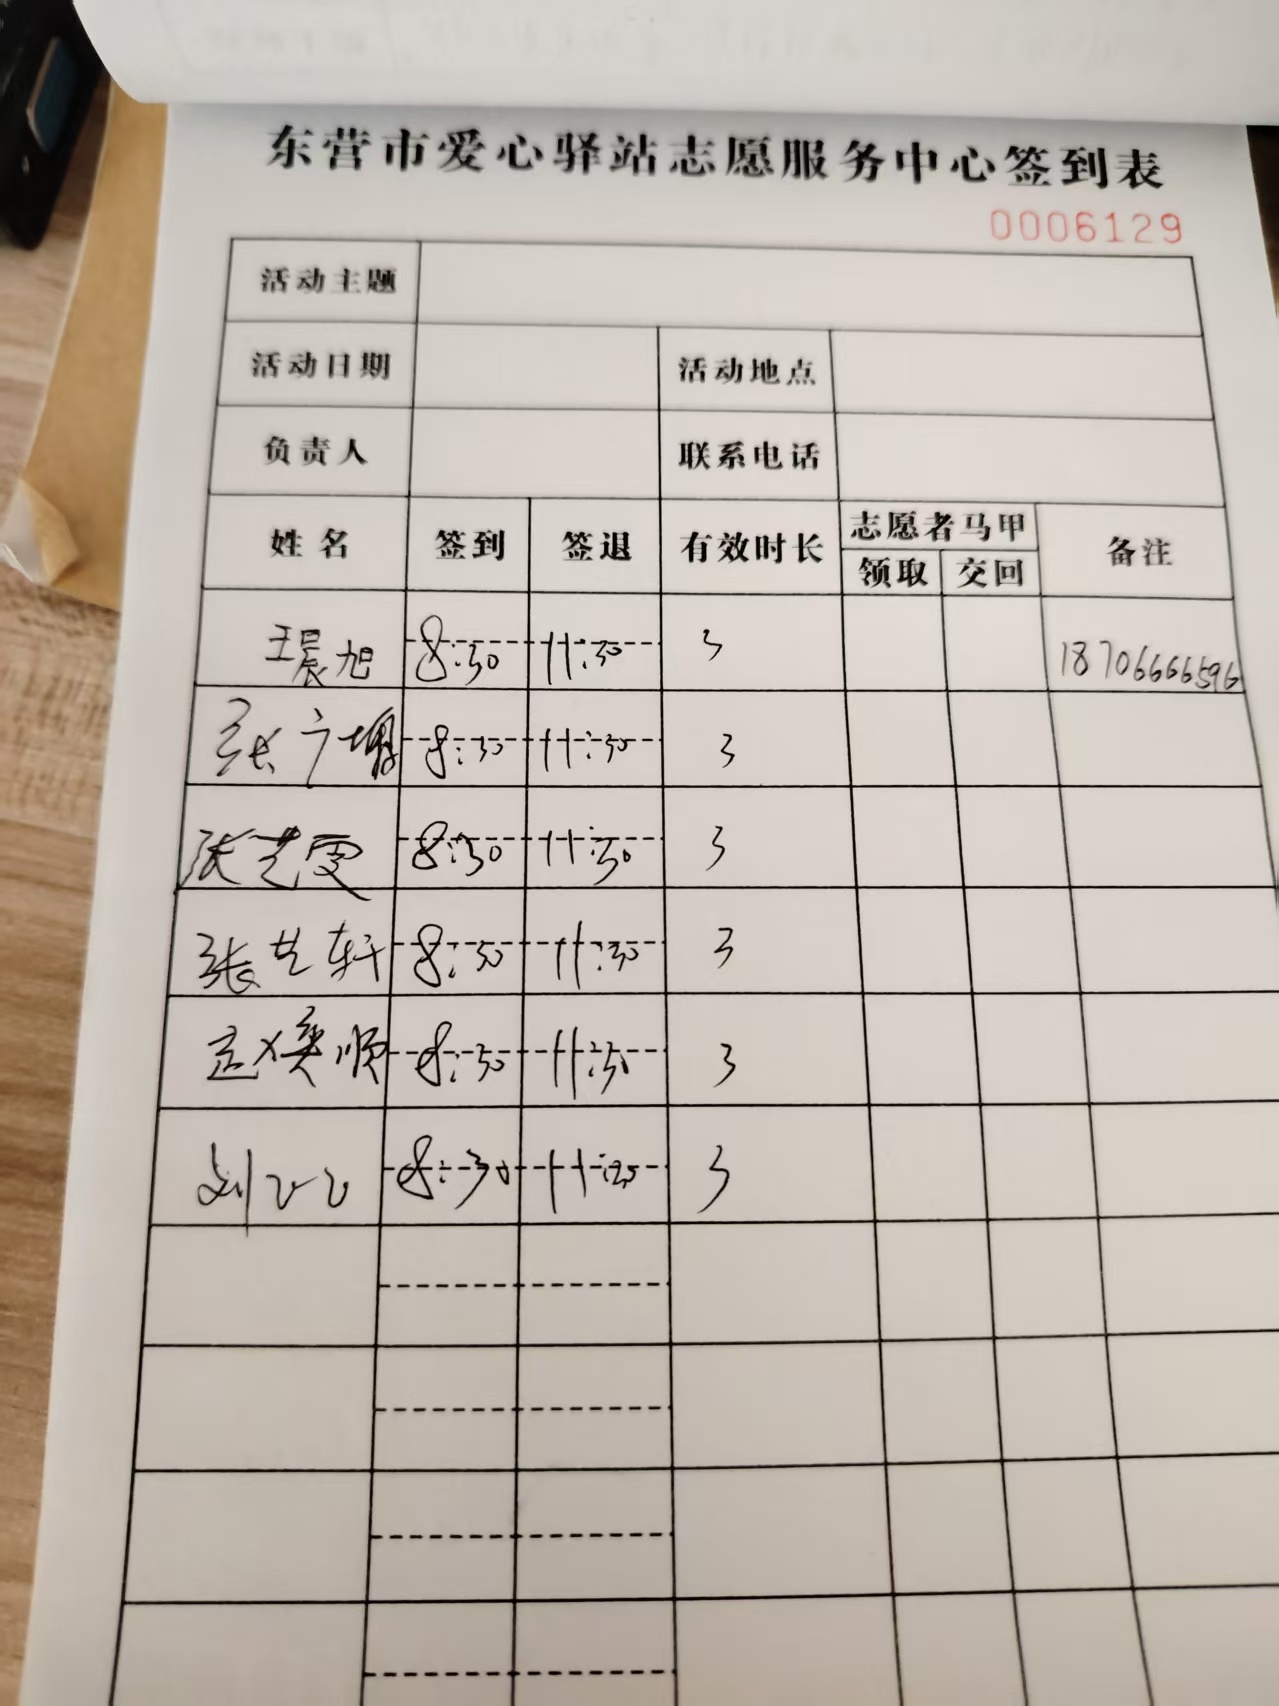 东营市爱心驿站志愿服务中心签到表
0006129
活动主题
活动日期 活动地点
负责人 联系电话
姓名 签到 签退 有效时长 志愿者马甲 备注
领取 交回
王晨旭 8:30 11:30 3 18706666596
张广 8:30 11:30 3
张芝雯 8:30 11:30 3
张芝轩 8:30 11:30 3
孟焕顺 8:30 11:30 3
刘 8:30 11:30 3